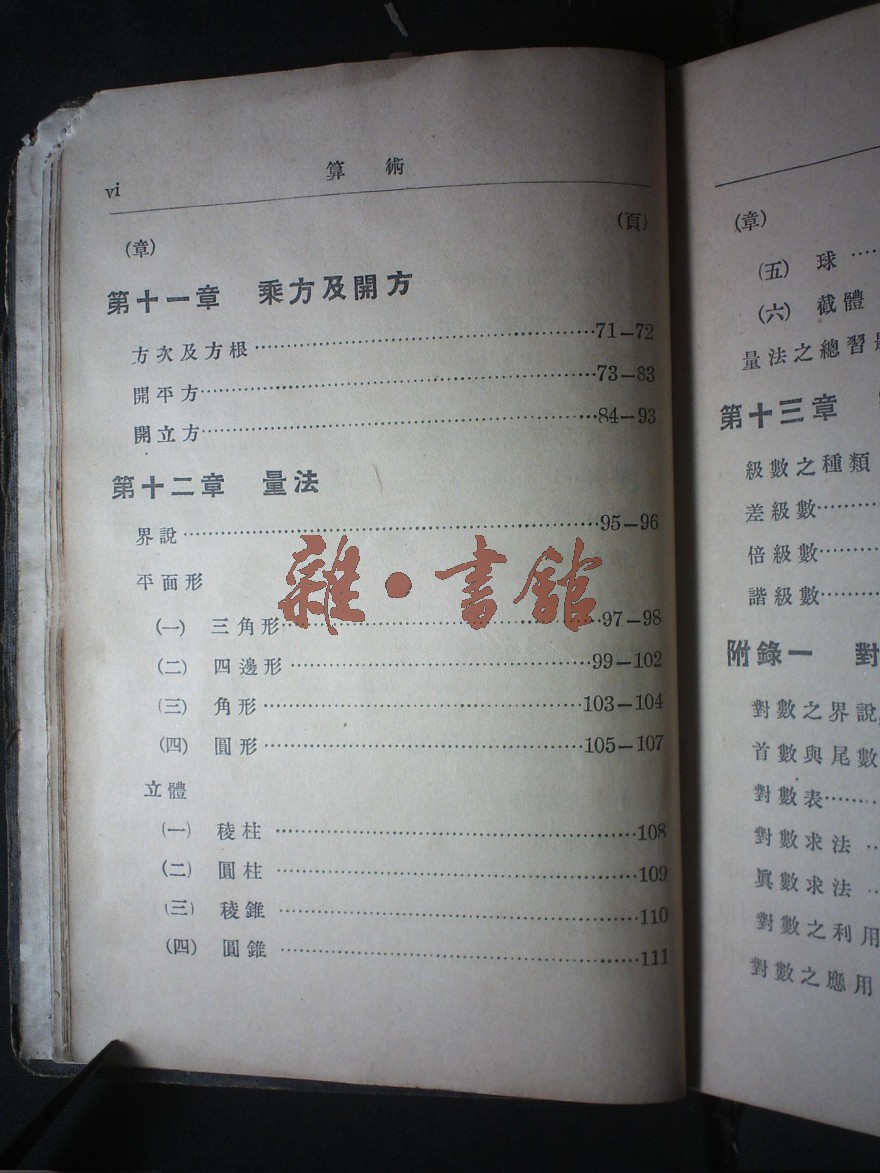 vi 算術
(章) (頁)
第十一章 乘方及開方
方次及方根……71—72
開平方……73—83
開立方……84—93
第十二章 量法
界說……95—96
平面形
(一) 三角形……97—98
(二) 四邊形……99—102
(三) 角形……103—104
(四) 圓形……105—107
立體
(一) 稜柱……108
(二) 圓柱……109
(三) 稜錐……110
(四) 圓錐……111
雜·書舘
(章)
(五) 球……
(六) 截體
量法之總習
第十三章
級數之種類
差級數……
倍級數……
諧級數……
附錄一 對
對數之界說,
首數與尾數
對數表……
對數求法……
眞數求法……
對數之利用
對數之應用